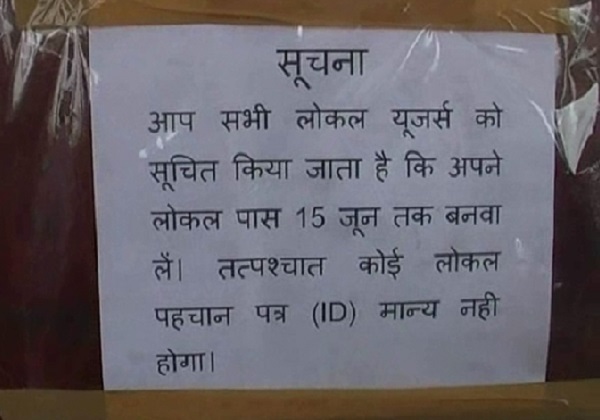 सूचना
आप सभी लोकल यूजर्स को
सूचित किया जाता है कि अपने
लोकल पास 15 जून तक बनवा
लें। तत्पश्चात कोई लोकल
पहचान पत्र (ID) मान्य नही
होगा।